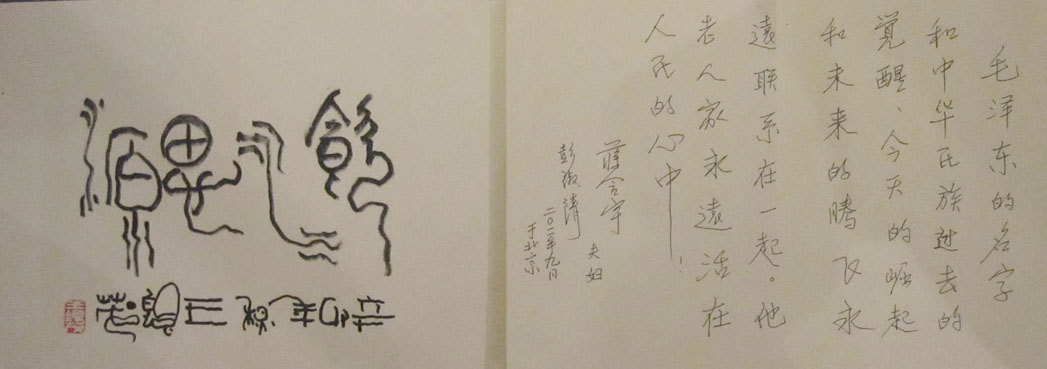 毛泽东的名字
和中华民族过去的
觉醒、今天的崛起
和未来的腾飞永
遠联系在一起。他
老人家永遠活在
人民的心中！
夫妇
彭淑清
于北京
飲水思源
辛卯年秋